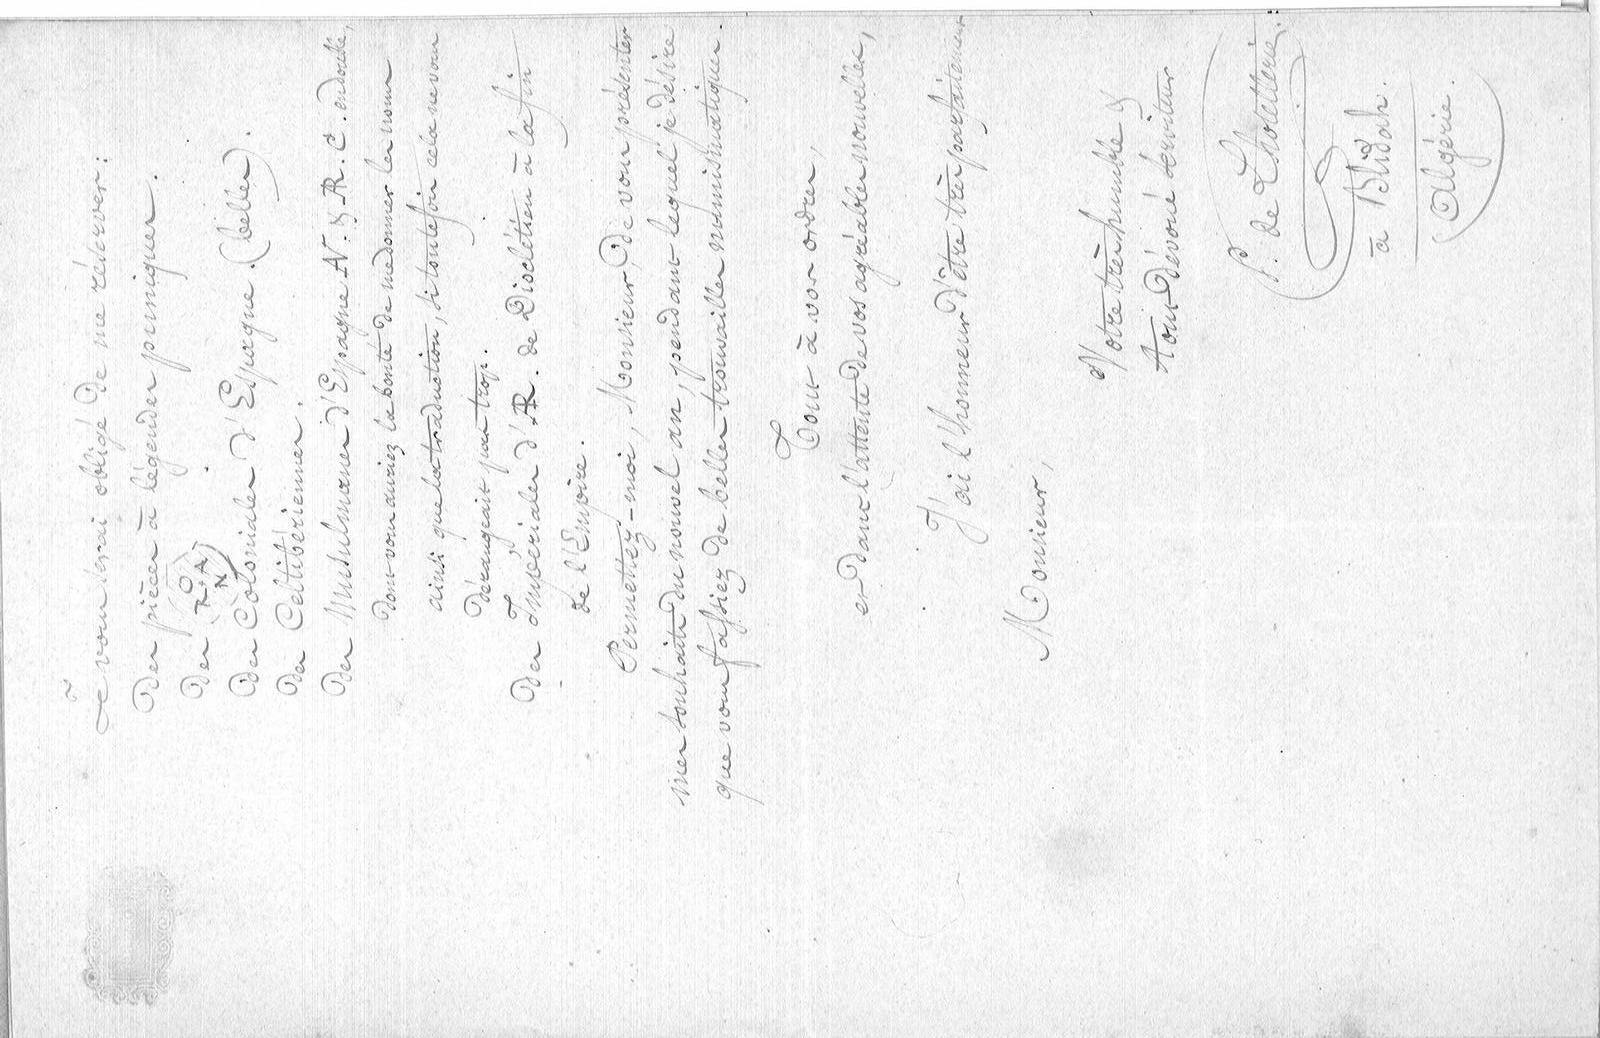 Je vous serai obligé de me réserver:
Des pièces à légendes puniques.
Des
Des Coloniales d'Espagne. (belles).
Des Celtibériennes.
Des Musulmanes d'Espagne N. & AR. C. en double,
dont vous auriez la bonté de me donner les noms
ainsi que la traduction, si toutefois cela ne vous
dérangeait pas trop.
Des Impériales d'AR. de Dioclétien à la fin
de l'Empire.
Permettez-moi, Monsieur, de vous présenter
mes souhaits du nouvel an, pendant lequel je désire
que vous fassiez de belles trouvailles numismatiques.
Tout à vos ordres,
et dans l'attente de vos agréables nouvelles,
J'ai l'honneur d'être très parfaitement
Monsieur,
Votre très humble &
tout dévoué serviteur
P. de Lhotellerie.
à Blidah.
Algérie.